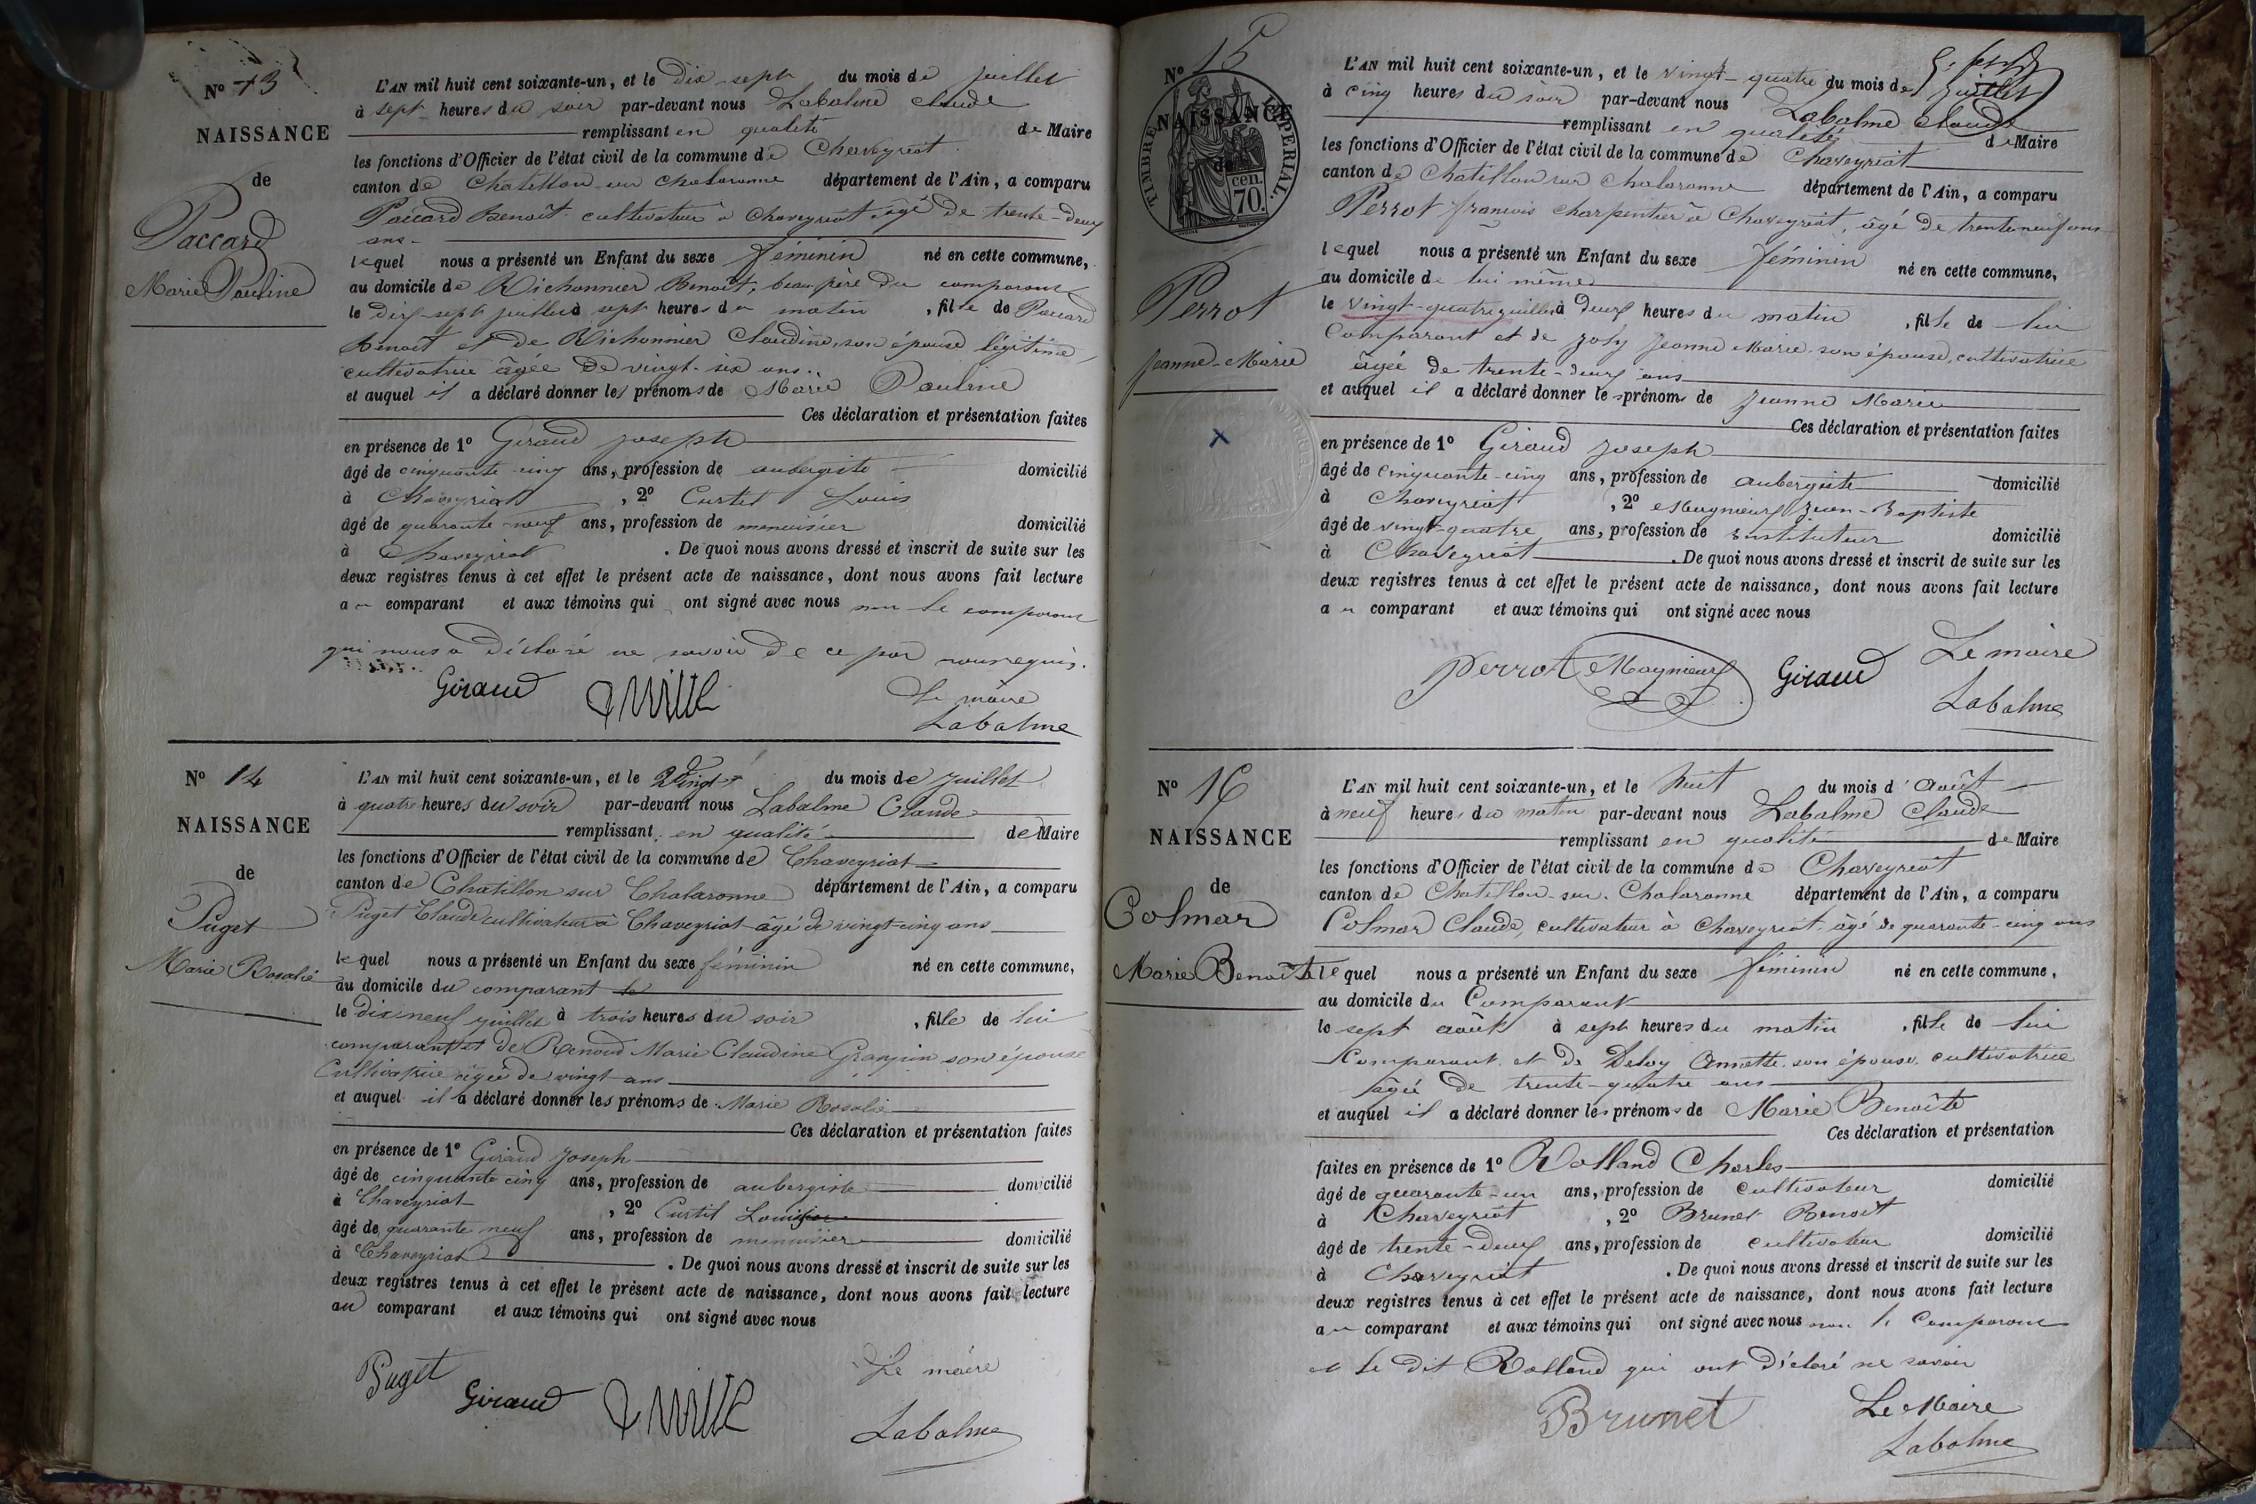 N° 13
NAISSANCE
de
Paccard
Marie Pauline
L'AN mil huit cent soixante-un, et le dix-sept du mois de juillet
à sept heures du soir par-devant nous Labalme Claude
remplissant en qualité de Maire
les fonctions d'Officier de l'état civil de la commune de Chaveyriat
canton de Chatillon sur Chalaronne département de l'Ain, a comparu
Paccard Benoît cultivateur à Chaveyriat âgé de trente-deux
ans
lequel nous a présenté un Enfant du sexe féminin né en cette commune,
au domicile de Richonnier Benoît, beau père du comparant
le dix-sept juillet à sept heures du matin, fille de Paccard
Benoît et de Richonnier Claudine, son épouse légitime,
cultivatrice âgée de vingt-six ans.
et auquel il a déclaré donner les prénoms de Marie Pauline
Ces déclaration et présentation faites
en présence de 1° Giraud Joseph
âgé de cinquante-cinq ans, profession de aubergiste domicilié
à Chaveyriat, 2° Curtet Louis
âgé de quarante-neuf ans, profession de menuisier domicilié
à Chaveyriat. De quoi nous avons dressé et inscrit de suite sur les
deux registres tenus à cet effet le présent acte de naissance, dont nous avons fait lecture
au comparant et aux témoins qui ont signé avec nous non le comparant
qui nous a déclaré ne savoir de ce par nous requis.
Giraud
Le maire
Labalme
N° 14
NAISSANCE
de
Puget
Marie Rosalie
L'AN mil huit cent soixante-un, et le vingt du mois de juillet
à quatre heures du soir par-devant nous Labalme Claude
remplissant en qualité de Maire
les fonctions d'Officier de l'état civil de la commune de Chaveyriat
canton de Chatillon sur Chalaronne département de l'Ain, a comparu
Puget Claude cultivateur à Chaveyriat âgé de vingt-cinq ans
lequel nous a présenté un Enfant du sexe féminin né en cette commune,
au domicile du comparant
le dix neuf juillet à trois heures du soir, fille de lui
comparant et de Renoud Marie Claudine son épouse
Cultivatrice âgée de vingt ans
et auquel il a déclaré donner les prénoms de Marie Rosalie
Ces déclaration et présentation faites
en présence de 1° Giraud Joseph
âgé de cinquante cinq ans, profession de aubergiste domicilié
à Chaveyriat, 2° Curtil Louis
âgé de quarante neuf ans, profession de menuisier domicilié
à Chaveyriat. De quoi nous avons dressé et inscrit de suite sur les
deux registres tenus à cet effet le présent acte de naissance, dont nous avons fait lecture
au comparant et aux témoins qui ont signé avec nous
Puget Giraud
Le maire
Labalme
N° 15
NAISSANCE
de
TIMBRE IMPERIAL
70 cen.
Perrot
Jeanne-Marie
L'AN mil huit cent soixante-un, et le vingt-quatre du mois de juillet
à cinq heures du soir par-devant nous Labalme Claude
remplissant en qualité de Maire
les fonctions d'Officier de l'état civil de la commune de Chaveyriat
canton de Chatillon sur Chalaronne département de l'Ain, a comparu
Perrot françois charpentier à Chaveyriat, âgé de trente-neuf ans
lequel nous a présenté un Enfant du sexe féminin né en cette commune,
au domicile de lui même
le vingt-quatre juillet à deux heures du matin, fille de lui
Comparant et de Joly Jeanne Marie son épouse, cultivatrice
âgée de trente-deux ans
et auquel il a déclaré donner les prénoms de Jeanne Marie
Ces déclaration et présentation faites
en présence de 1° Giraud Joseph
âgé de cinquante-cinq ans, profession de aubergiste domicilié
à Chaveyriat, 2° Magnieux Jean-Baptiste
âgé de vingt-quatre ans, profession de instituteur domicilié
à Chaveyriat. De quoi nous avons dressé et inscrit de suite sur les
deux registres tenus à cet effet le présent acte de naissance, dont nous avons fait lecture
au comparant et aux témoins qui ont signé avec nous
Perrot Magnieux Giraud
Le maire
Labalme
N° 16
NAISSANCE
de
Colmar
Marie Benoîte
L'AN mil huit cent soixante-un, et le huit du mois d'août
à neuf heures du matin par-devant nous Labalme Claude
remplissant en qualité de Maire
les fonctions d'Officier de l'état civil de la commune de Chaveyriat
canton de Chatillon-sur-Chalaronne département de l'Ain, a comparu
Colmar Claude, cultivateur à Chaveyriat âgé de quarante-cinq ans
lequel nous a présenté un Enfant du sexe féminin né en cette commune,
au domicile du Comparant
le sept août à sept heures du matin, fille de lui
Comparant et de Annette son épouse cultivatrice
âgée de trente-quatre ans
et auquel il a déclaré donner les prénoms de Marie Benoîte
Ces déclaration et présentation
faites en présence de 1° Rolland Charles
âgé de quarante-un ans, profession de cultivateur domicilié
à Chaveyriat, 2° Brunet Benoît
âgé de trente-deux ans, profession de cultivateur domicilié
à Chaveyriat. De quoi nous avons dressé et inscrit de suite sur les
deux registres tenus à cet effet le présent acte de naissance, dont nous avons fait lecture
au comparant et aux témoins qui ont signé avec nous non le Comparant
et le dit Rolland qui ont déclaré ne savoir
Brunet
Le Maire
Labalme